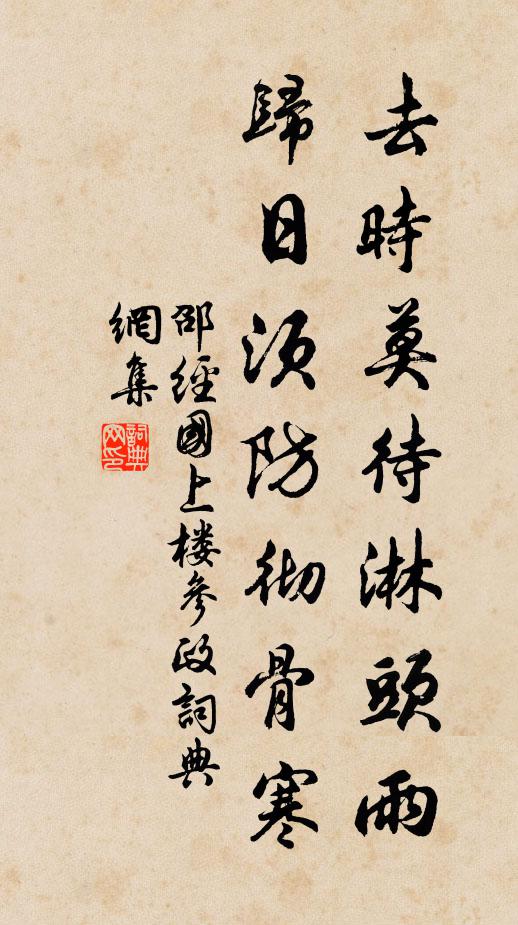 去時莫待淋頭雨
歸日須防徹骨寒
邵經國上楼參政詞典
網集
詞典網印